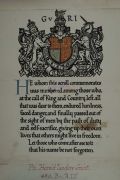 G V R I
He whom this scroll commemorates
was numbered among those who,
at the call of King and Country, left all
that was dear to them, endured hardness,
faced danger, and finally passed out of
the sight of men by the path of duty
and self-sacrifice, giving up their own
lives that others might live in freedom.
Let those who come after see to it
that his name be not forgotten.
Pte.